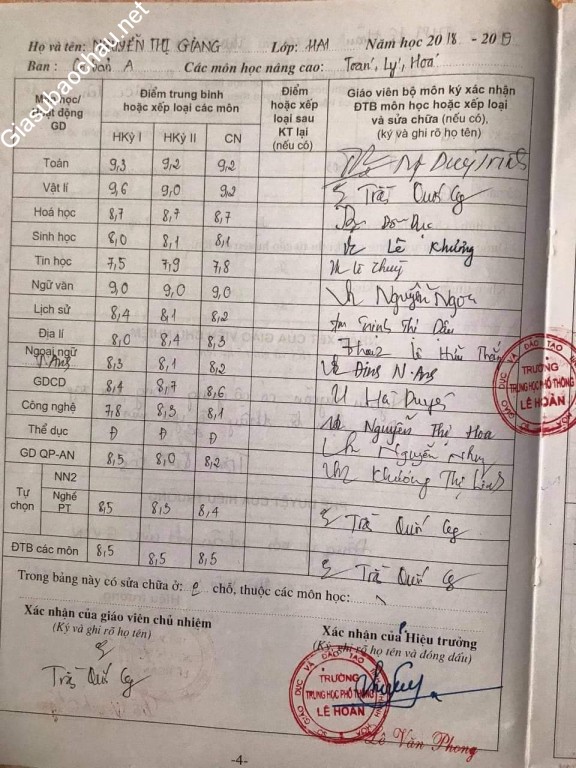 Giasubaochau.net
Họ và tên: NGUYỄN THỊ GIANG Lớp: 11A1 Năm học 2018 - 2019
Ban : Cơ bản A Các môn học nâng cao: Toán, Lý, Hoá
Môn học/ Hoạt động GD
Điểm trung bình hoặc xếp loại các môn
HKỳ I HKỳ II CN
Điểm hoặc xếp loại sau KT lại (nếu có)
Giáo viên bộ môn ký xác nhận ĐTB môn học hoặc xếp loại và sửa chữa (nếu có), (ký và ghi rõ họ tên)
Toán 9,3 9,2 9,2 Duy Trinh
Vật lí 9,6 9,0 9,2 Trần Quốc
Hoá học 8,7 8,7 8,7
Sinh học 8,0 8,1 8,1 Lê Khương
Tin học 7,5 7,9 7,8 Lê Thuỷ
Ngữ văn 9,0 9,0 9,0 Nguyễn Ngoa
Lịch sử 8,4 8,1 8,2 Trịnh Thị Dậu
Địa lí 8,0 8,4 8,3 Lê Hữu
Ngoại ngữ 8,3 8,1 8,2
N.Anh
GDCD 8,4 8,7 8,6
Công nghệ 7,8 8,3 8,1 Nguyễn Thị Hoa
Thể dục Đ Đ Đ Nguyễn
GD QP-AN 8,5 8,0 8,2 Khương Thị
Tự chọn
NN2
Nghề PT 8,5 8,3 8,4 Trần Quốc
ĐTB các môn 8,5 8,5 8,5 Trần Quốc
Trong bảng này có sửa chữa ở: chỗ, thuộc các môn học:
Xác nhận của giáo viên chủ nhiệm
(Ký và ghi rõ họ tên)
Trần Quốc
Xác nhận của Hiệu trưởng
(Ký, ghi rõ họ tên và đóng dấu)
TRƯỜNG
TRUNG HỌC PHỔ THÔNG
LÊ HOÀN
SỞ GIÁO DỤC VÀ ĐÀO TẠO
Lê Văn Phong
TRƯỜNG
TRUNG HỌC PHỔ THÔNG
LÊ HOÀN
-4-